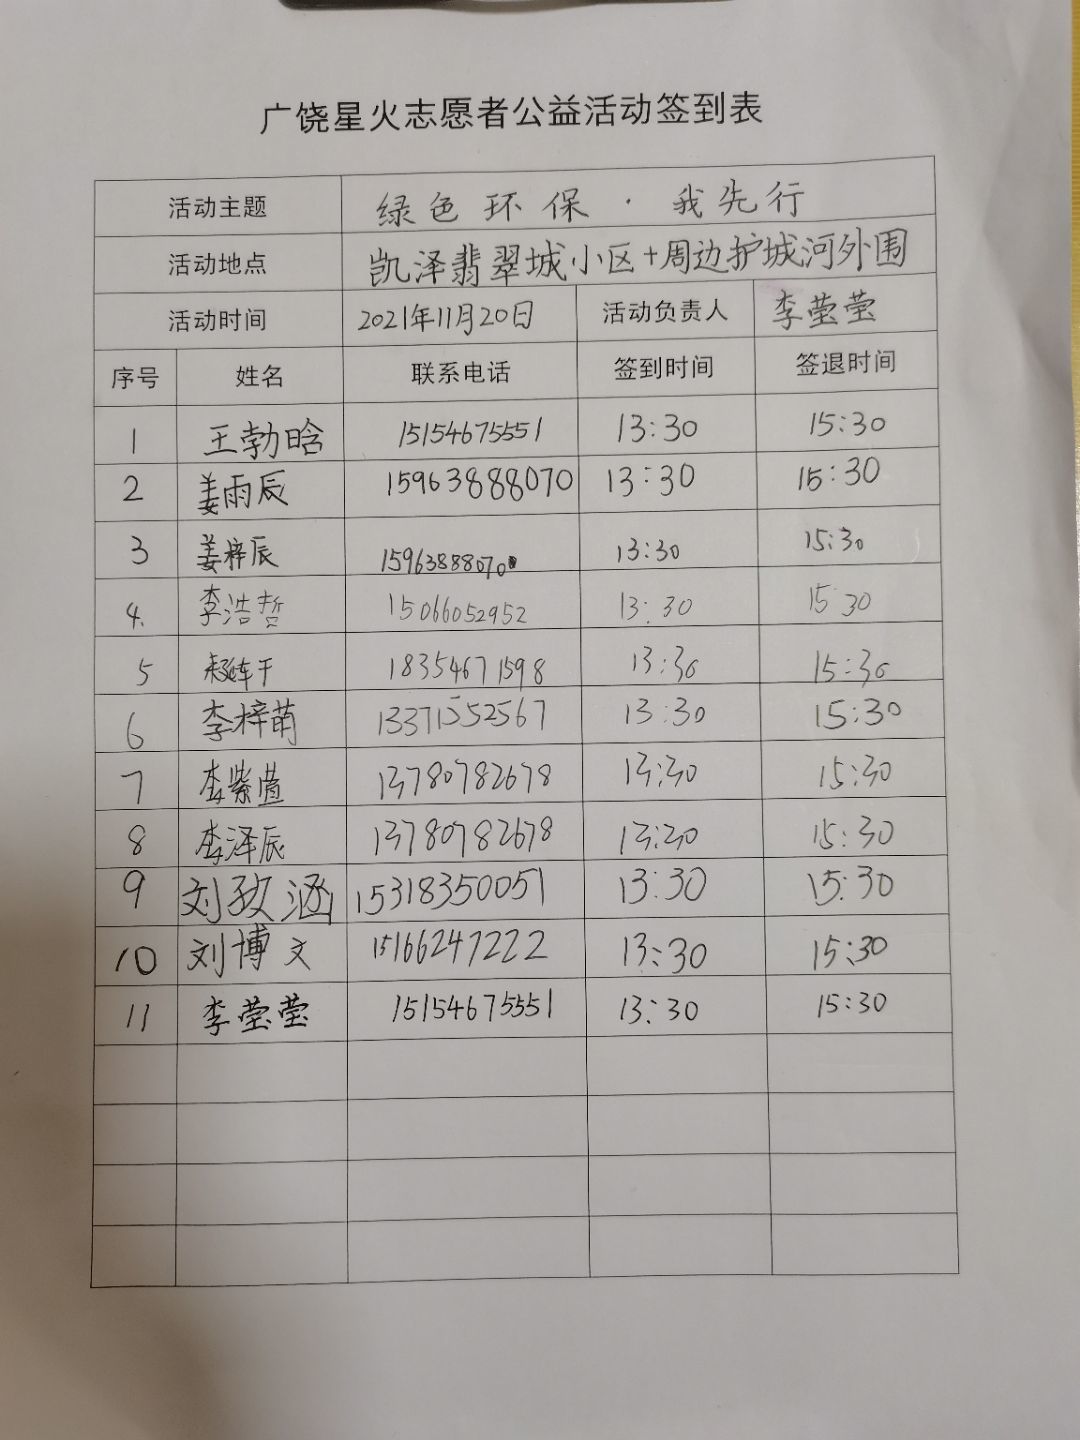 广饶星火志愿者公益活动签到表
活动主题 绿色环保·我先行
活动地点 凯泽翡翠城小区+周边护城河外围
活动时间 2021年11月20日 活动负责人 李莹莹
序号 姓名 联系电话 签到时间 签退时间
1 王勃晗 15154675551 13:30 15:30
2 姜雨辰 15963888070 13:30 15:30
3 姜梓辰 15963888070 13:30 15:30
4. 李浩哲 15066052952 13:30 15 30
5 18354671598 13:30 15:30
6 李梓萌 13371552567 13:30 15:30
7 李紫萱 13780782678 13:30 15:30
8 李泽辰 13780782678 13:30 15:30
9 刘孜涵 15318350051 13:30 15:30
10 刘博文 15166247222 13:30 15:30
11 李莹莹 15154675551 13:30 15:30